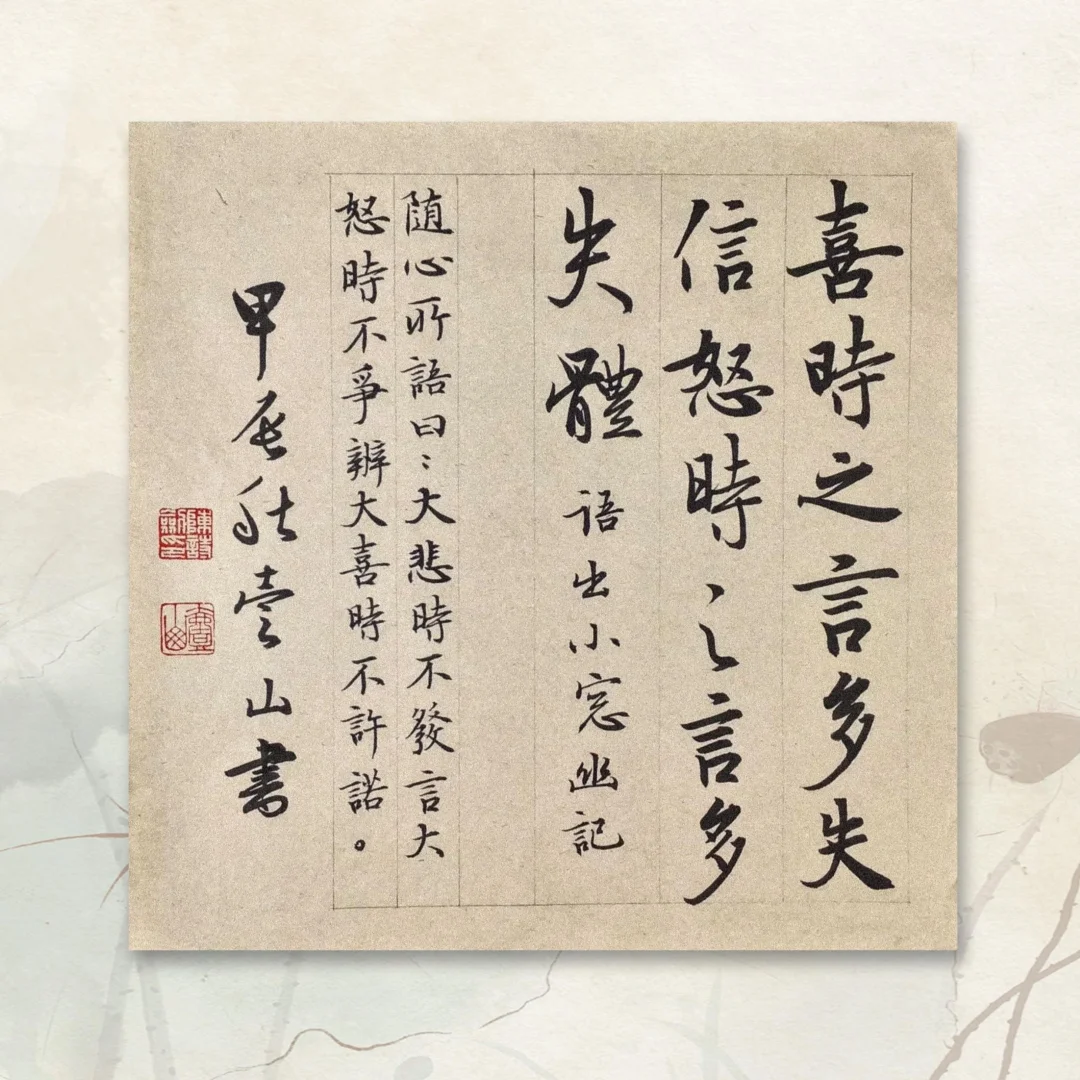 喜時之言多失
信怒時之言多
失體 語出小窓幽記
随心所語曰：大悲時不發言大
怒時不爭辨大喜時不許諾。
甲辰秋山書